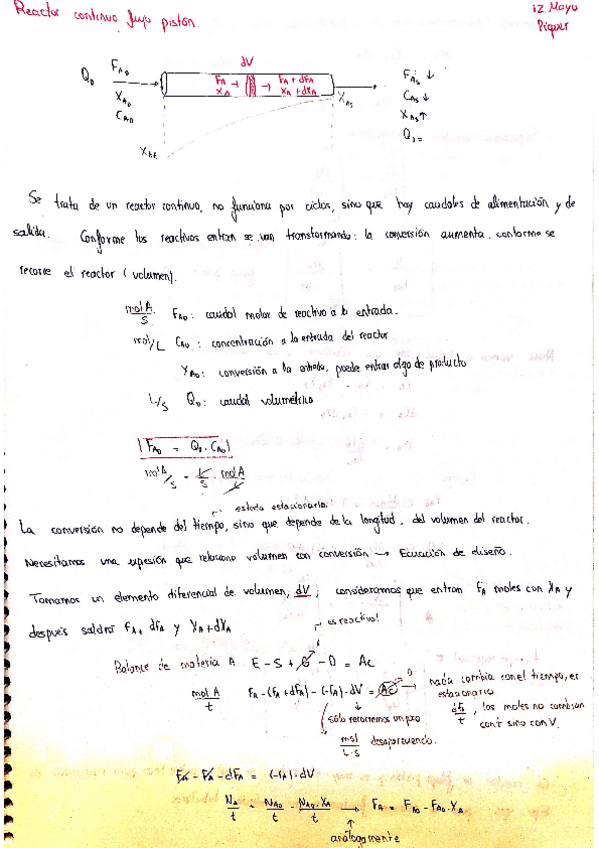 Reactor continuo flujo pistón.
12 Mayo
Piquer
dV
Q₀
F_A0
X_A0
C_A0
F_A → → F_A + dF_A
X_A X_A + dX_A
X_AS
F_AS ↓
C_AS ↓
X_AS ↑
Q_S =
Se trata de un reactor continuo, no funciona por ciclos, sino que hay caudales de alimentación y de
salida. Conforme los reactivos entran se van transformando: la conversión aumenta conforme se
recorre el reactor (volumen).
mol A/s F_A0: caudal molar de reactivo a la entrada.
mol/L C_A0: concentración a la entrada del reactor
X_A0: conversión a la entrada, puede entrar algo de producto
L/s Q₀: caudal volumétrico
|F_A0 = Q₀ · C_A0|
mol A/s = L/s · mol A/L
estado estacionario.
La conversión no depende del tiempo, sino que depende de la longitud, del volumen del reactor.
Necesitamos una expresión que relacione volumen con conversión → Ecuación de diseño.
Tomamos un elemento diferencial de volumen, dV; consideramos que entran F_A moles con X_A y
después saldrá F_A + dF_A y X_A + dX_A
es reactivo!
Balance de materia A E - S + G - D = Ac
mol A/t F_A - (F_A + dF_A) - (-r_A) · dV = Ac → 0
nada cambia con el tiempo, es
estacionario
dF_A/t, los moles no cambian
con t sino con V.
sólo recorremos un
mol/L·s desapareciendo.
F_A - F_A - dF_A = (-r_A) · dV
N_A/t = N_A0/t - N_A0·X_A/t → F_A = F_A0 - F_A0 · X_A
análogamente